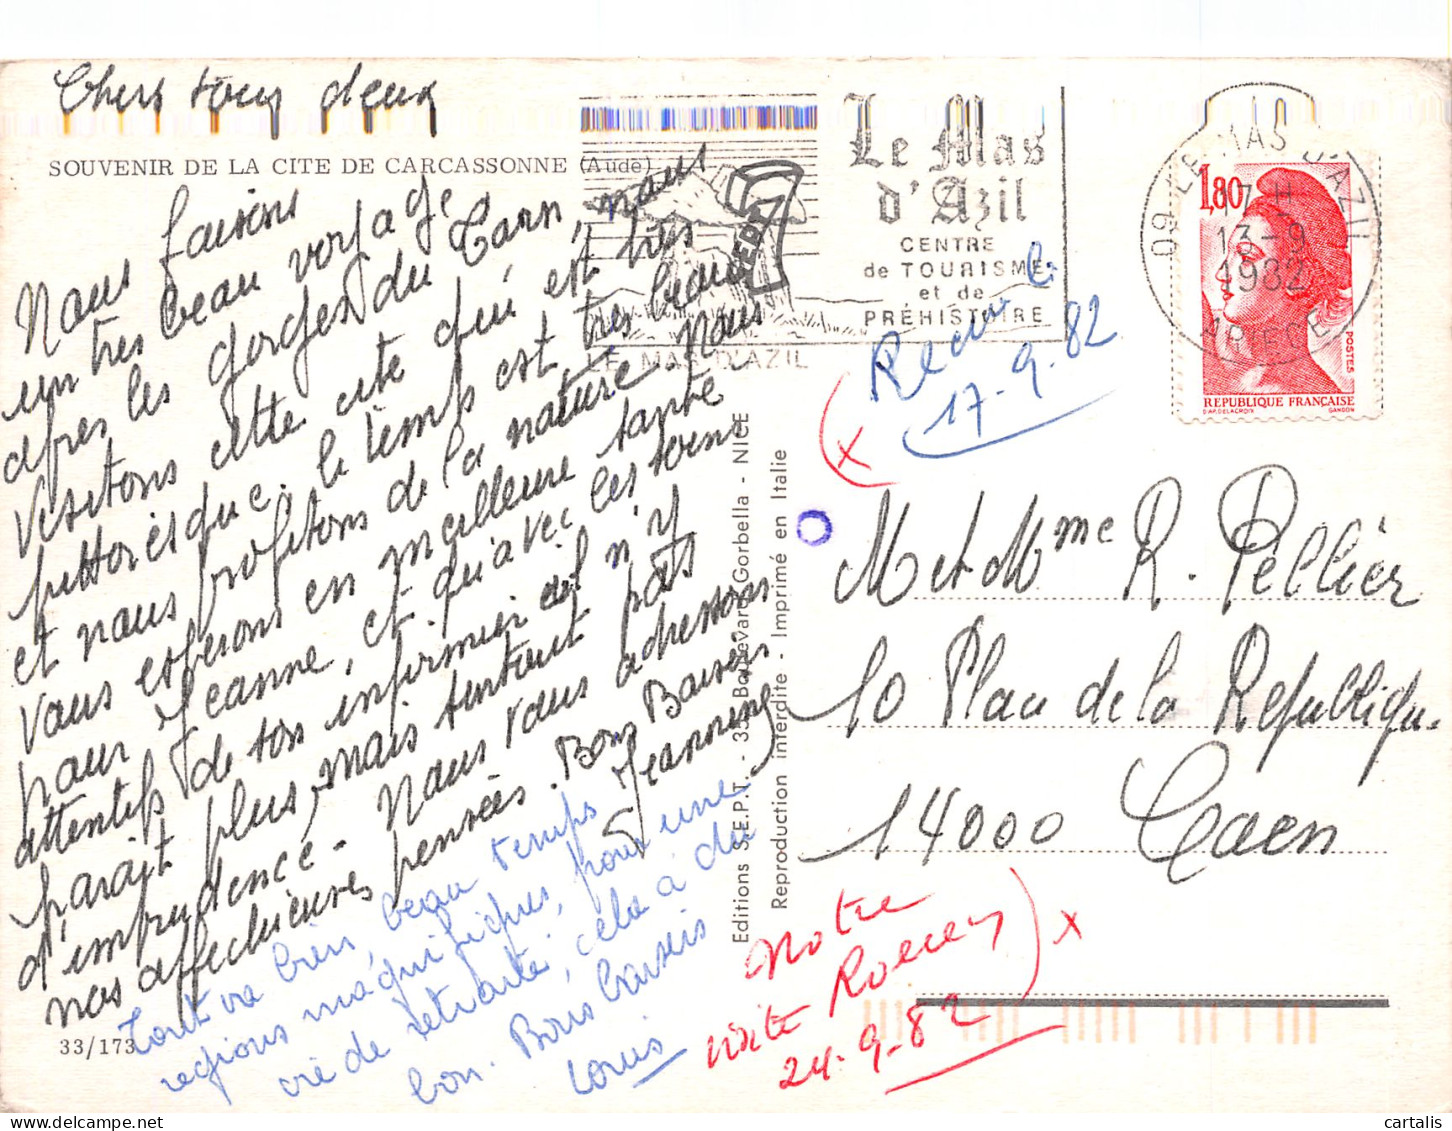 Chers tous deux
SOUVENIR DE LA CITE DE CARCASSONNE (Aude)
Nous faisons
un tres beau voyage
apres les gorges du Tarn, nous
visitons cette cité qui est très
pittoresque. le temps est très beau
et nous profitons de la nature. Nous
vous esperons en meilleure santé
pour Jeanne, et qu'avec les soins
attentifs de ton infirmier il n'y
parait plus, mais surtout pas
d'imprudence. Nous vous adressons
nos affectueuses pensées. Bons Baisers
Jeannine
Tout va bien, beau temps
régions magnifiques, pour une
vie de retraité, cela a du
bon. Bons baisers
Louis
33/173
Editions S.E.P.T. - 35 Boulevard Gorbella - NICE
Reproduction interdite - Imprimé en Italie
Le Mas
d'Azil
CENTRE
de TOURISME
et de
PRÉHISTOIRE
LE MAS D'AZIL
09 LE MAS D'AZIL
17 H
13-9
1982
ARIEGE
1,80
POSTES
REPUBLIQUE FRANÇAISE
D'AP. DELACROIX GANDON
Recu le
17-9-82
(x
M et Mme R. Pellier
10 Place de la République
14000 Caen
Notre
visite
24-9-82
) x